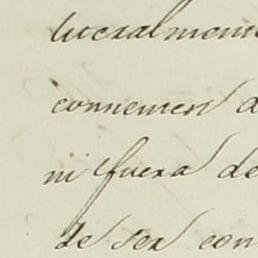 literalmente
connemen d
ni fuera de
de ser con